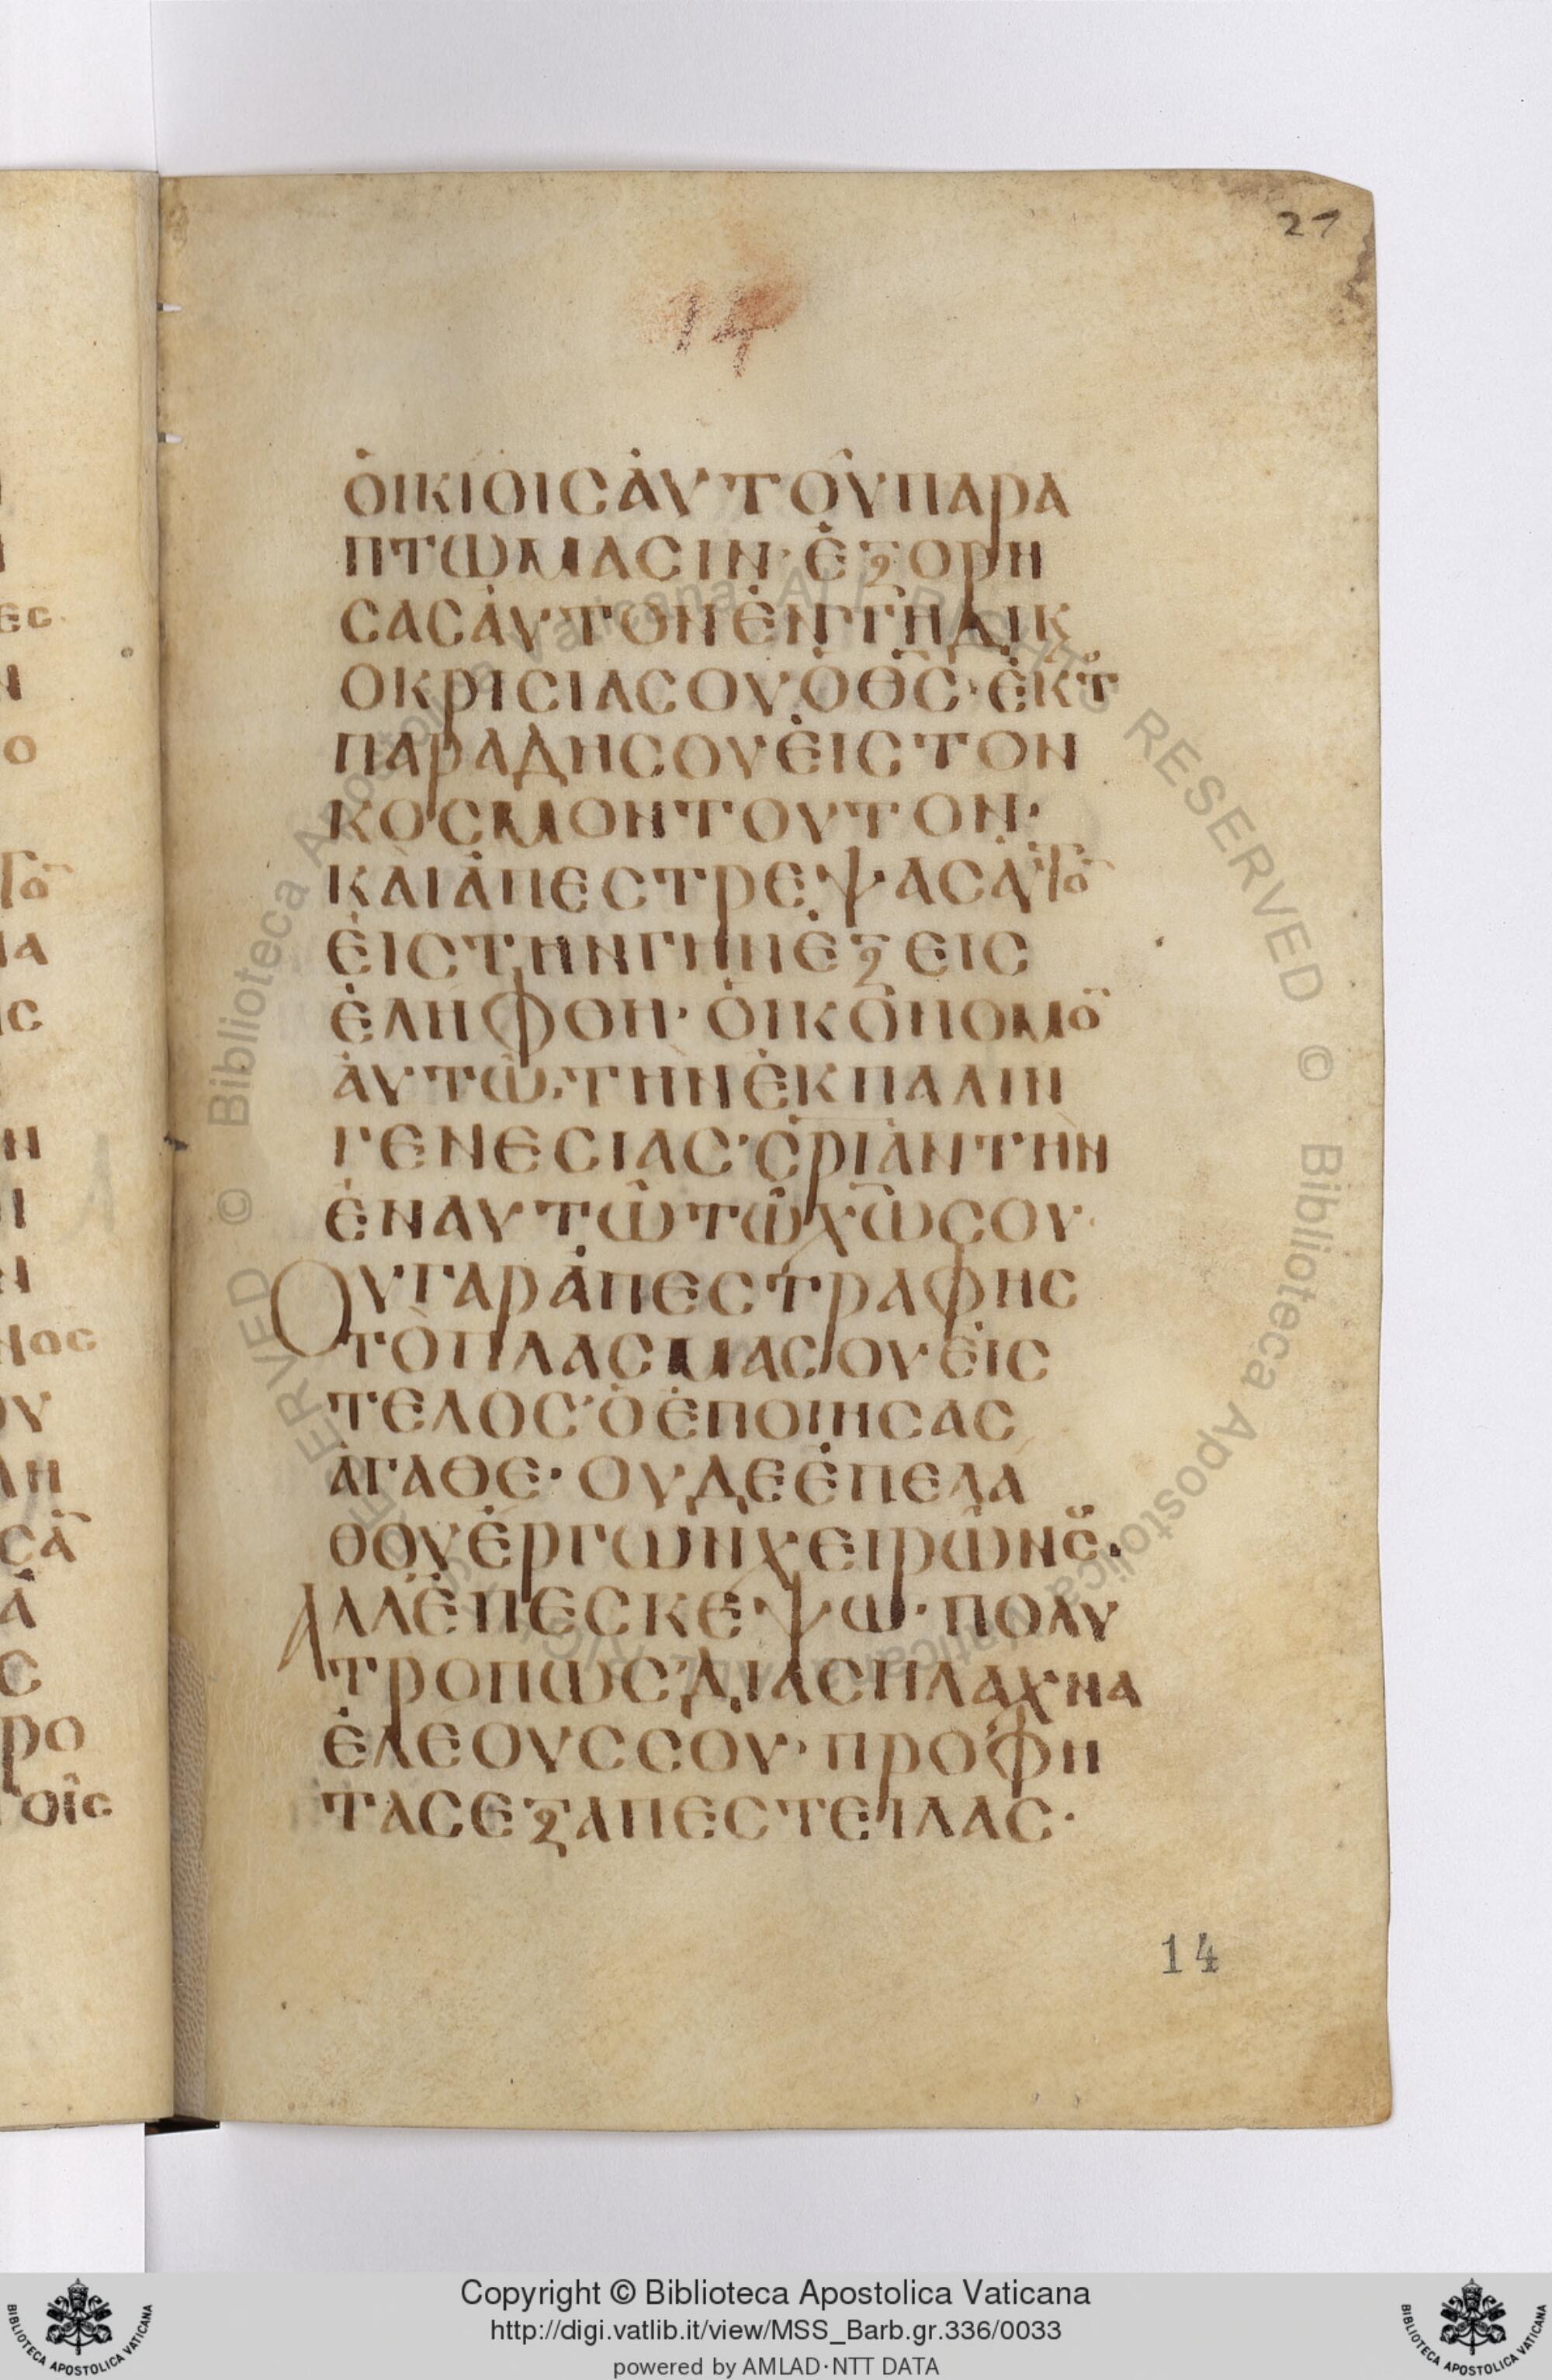 21
14
ὁικιοιςἀυτοῦπαρα
πτωμαςιν·ἐξορη
ςαςἀυτονἐνττῆδικ
οκριςιαςουὁθ̅ς̅·ἐκτ
παραδηςουἐιςτον
κοςμοντουτον·
καιἀπεςτρεψας
ἐιςτηνγηνἐξεις
ἐληφθη·ὁικονομο
ἀυτῶ·τηνἐκπαλιν
γενεςιας·ς̅ρ̅ιαντην
ἐναυτῶτῶχ̅ω̅ςου·
Ουγαρἀπεςτραφης
τὸπλαςμαςουεἰς
τελος·ὁἐποιηςας
ἀγαθε·ουδεἐπελα
θουἐργωνχειρῶνς·
Αλλἐπεςκεψω·πολυ
τροπως·διαςπλαχνα
ἐλεουςςου·προφη
ταςεξαπεςτειλας·
14
Copyright © Biblioteca Apostolica Vaticana
http://digi.vatlib.it/view/MSS_Barb.gr.336/0033
powered by AMLAD·NTT DATA